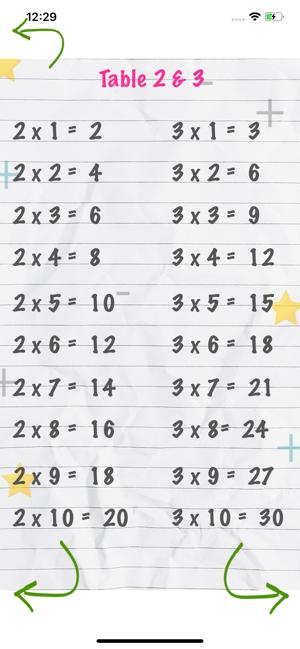 12:29
Table 2 & 3
2 x 1 = 2 3 x 1 = 3
2 x 2 = 4 3 x 2 = 6
2 x 3 = 6 3 x 3 = 9
2 x 4 = 8 3 x 4 = 12
2 x 5 = 10 3 x 5 = 15
2 x 6 = 12 3 x 6 = 18
2 x 7 = 14 3 x 7 = 21
2 x 8 = 16 3 x 8= 24
2 x 9 = 18 3 x 9 = 27
2 x 10 = 20 3 x 10 = 30